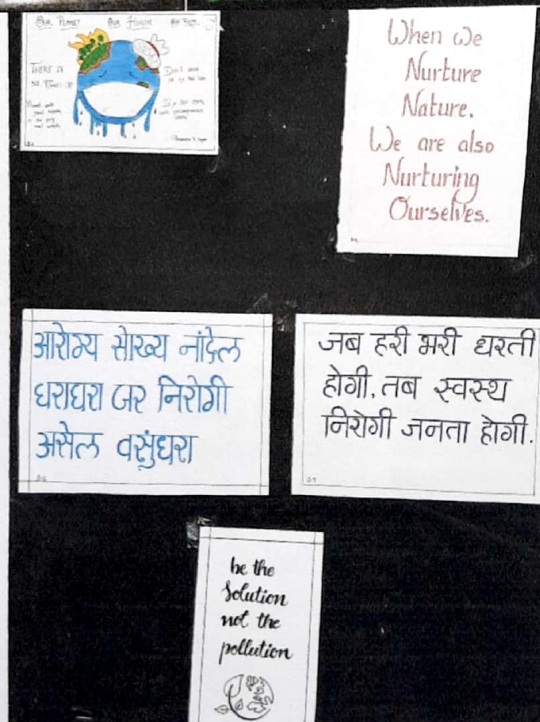 Our Planet Our Health
There is
Don't
When We
Nurture
Nature.
We are also
Nurturing
Ourselves.
आरोग्य सोख्य नांदेल
घराघरा जर निरोगी
असेल वसुंधरा
जब हरी भरी धरती
होगी, तब स्वस्थ
निरोगी जनता होगी.
be the
Solution
not the
pollution